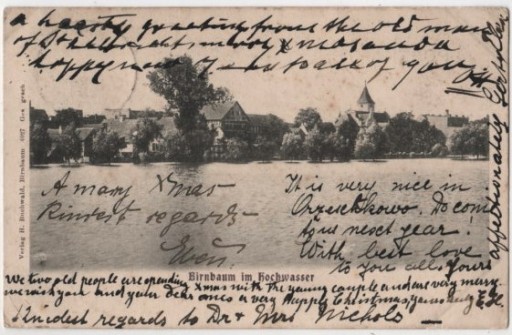 a hearty greeting from the old man
of merry Xmas and a
happy new year for all of you
A many Xmas
Kindest regards
It is very nice in
Orzeschkowo. Do come
to us next year.
With best love
to you all Yours
affectionately
Birnbaum im Hochwasser
Verlag H. Buchwald, Birnbaum 4027 Ges. gesch.
We two old people are spending Xmas with the young couple and are very merry.
we wish you and your dear ones a very Happy Christmas
Kindest regards to Dr & Mrs Nichols